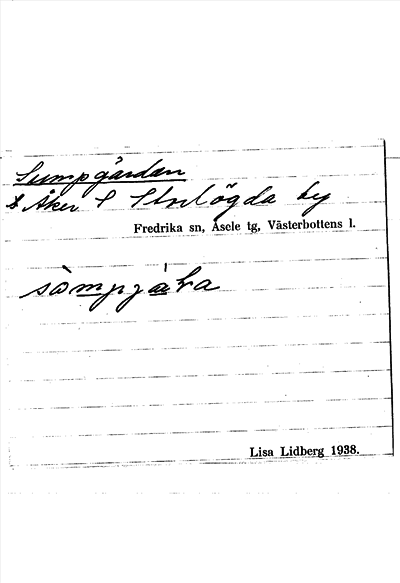 Sumpgårdan
Åker i Storlögda by
Fredrika sn, Åsele tg, Västerbottens l.
Lisa Lidberg 1938.